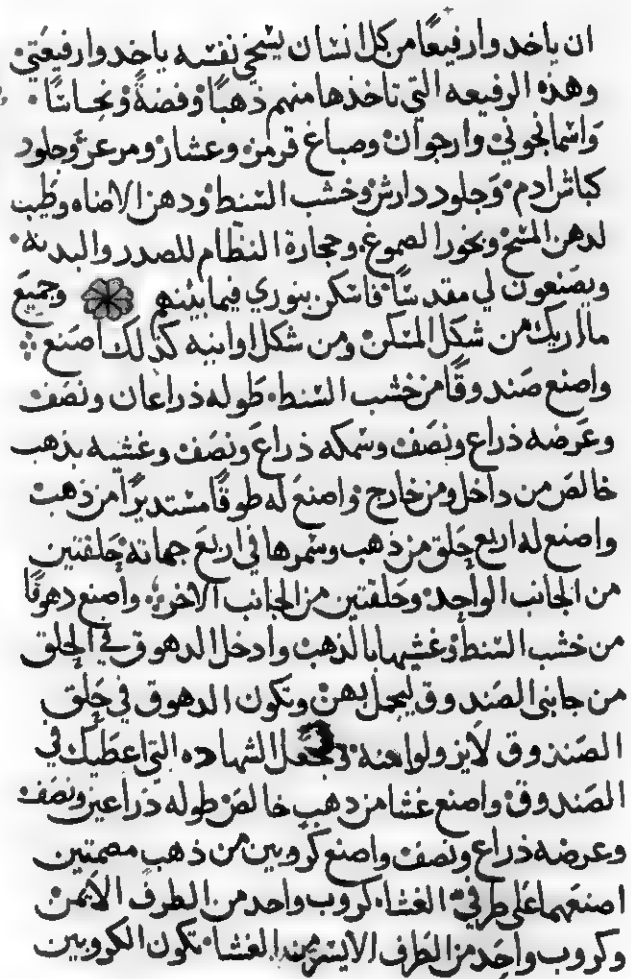 ان ياخدوا رفيعًا من كل انسان يسخي نفسه ياخدوا رفيعتي
وهذه الرفيعه التي تاخذها منهم ذهبًا وفضة ونحاسًا
واسمانجوني وارجوان وصباغ قرمز وعشار ومرعز وجلود
كباش ادم وجلود دارش وخشب السنط ودهن الاضاه وطيب
لدهن المسح وبخور الصموغ وحجارة النظام للصدر والبدنه
ويصنعون لي مقدسًا فاسكن بنوري فيما بينهم وجميع
ما اريك من شكل المسكن ومن شكل اوانيه كذلك اصنع
واصنع صندوقًا من خشب السنط طوله ذراعان ونصف
وعرضه ذراع ونصف وسمكه ذراع ونصف وغشيه بذهب
خالص من داخل ومن خارج واصنع له طوقًا مستديرًا من ذهب
واصنع له اربع حلق من ذهب وسمرها في اربع جهاته حلقتين
من الجانب الواحد وحلقتين من الجانب الاخر واصنع دهوقًا
من خشب السنط وغشيها بالذهب وادخل الدهوق في الحلق
من جانبي الصندوق ليحمل بهن وتكون الدهوق في حلق
الصندوق لا يزولوا منه وتجعل الشهاده التي اعطيك في
الصندوق واصنع غشا من ذهب خالص طوله ذراعين ونصف
وعرضه ذراع ونصف واصنع كروبين من ذهب مصمتين
اصنعهما على طرفي الغشا كروب واحد من الطرف الايمن
وكروب واحد من الطرف الايسر من الغشا تكون الكروبين